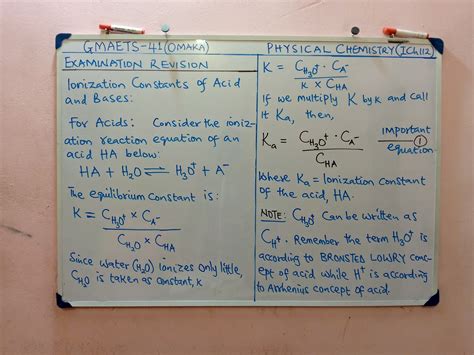 GMAETS-41 (OMAKA)
EXAMINATION REVISION
Ionization Constants of Acid
and Bases:
For Acids: Consider the ioniz-
ation reaction equation of an
acid HA below:
HA + H₂O ⇌ H₃O⁺ + A⁻
The equilibrium constant is:
K = C_H₃O⁺ × C_A⁻ / C_H₂O × C_HA
Since water (H₂O) ionizes only little,
C_H₂O is taken as constant, k
PHYSICAL CHEMISTRY (ICh112)
K = C_H₃O⁺ · C_A⁻ / k × C_HA
If we multiply K by k and call
it Ka, then,
Ka = C_H₃O⁺ · C_A⁻ / C_HA
Important
equation ①
where Ka = Ionization constant
of the acid, HA.
NOTE: C_H₃O⁺ can be written as
C_H⁺. Remember the term H₃O⁺ is
according to BRONSTED LOWRY conc-
ept of acid while H⁺ is according
to Arrhenius concept of acid.